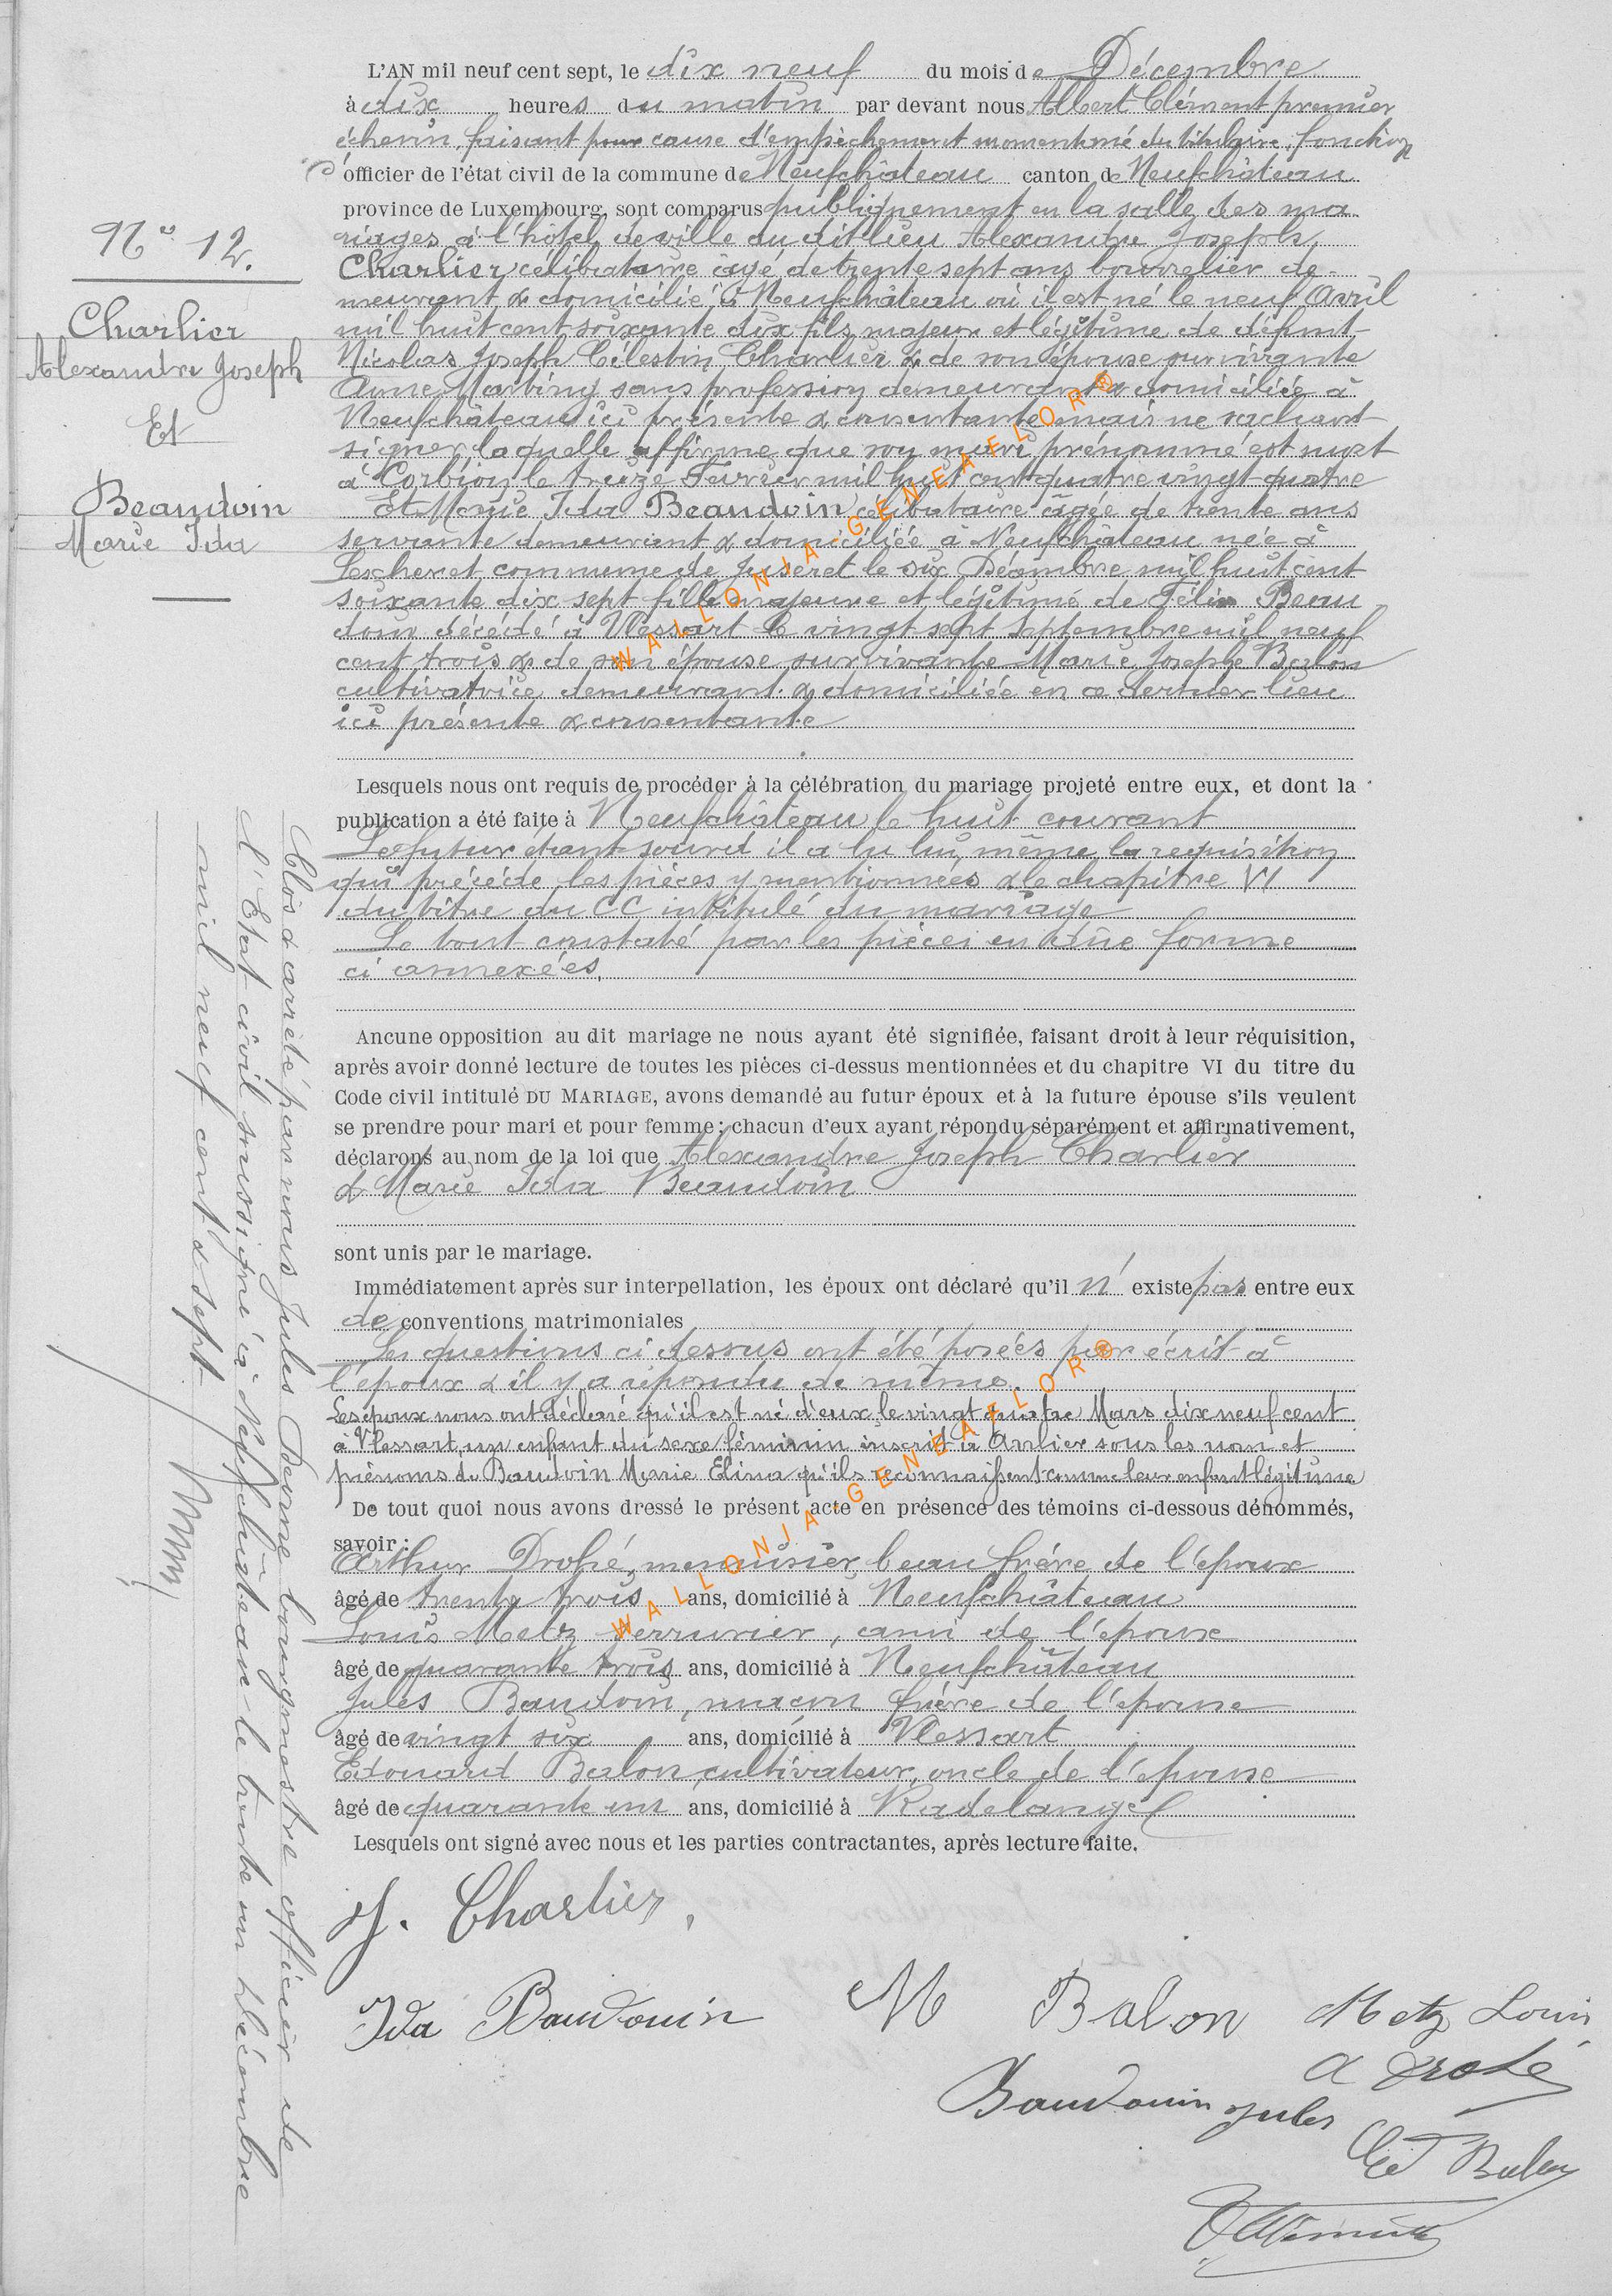 N° 12.
Charlier
Alexandre Joseph
Et
Beaudoin
Marie Ida
L'AN mil neuf cent sept, le dix neuf du mois de Décembre
à dix heures du matin par devant nous Albert Clément premier
échevin, faisant pour cause d'empêchement momentané du titulaire, fonctions
d'officier de l'état civil de la commune de Neufchâteau canton de Neufchâteau
province de Luxembourg, sont comparus publiquement en la salle des ma
riages à l'hôtel de ville du dit lieu Alexandre Joseph
Charlier célibataire âgé de trente sept ans bourrelier de-
meurant & domicilié à Neufchâteau où il est né le neuf Avril
mil huit cent soixante dix fils majeur et légitime de défunt
Nicolas Joseph Célestin Charlier & de son épouse survivante
Anne Marbiny sans profession demeurant & domiciliée à
Neufchâteau ici présente & consentante mais ne sachant
signer, laquelle affirme que son mari prénommé est mort
à Corbion le treize Février mil huit cent quatre vingt quatre
Et Marie Ida Beaudoin célibataire âgée de trente ans
servante demeurant & domiciliée à Neufchâteau née à
Lescheret commune de Juseret le six Décembre mil huit cent
soixante dix sept fille majeure et légitime de Félix Beau
doin décédé à Vlessart le vingt sept Septembre mil neuf
cent trois & de son épouse survivante Marie Josèphe Balon
cultivatrice demeurant & domiciliée en ce dernier lieu
ici présente & consentante
Lesquels nous ont requis de procéder à la célébration du mariage projeté entre eux, et dont la
publication a été faite à Neufchâteau le huit courant
Le futur étant sourd il a lu lui même la requisition
qui précède, les pièces y mentionnées & le chapitre VI
du titre du CC intitulé du mariage
Le tout constaté par les pièces en due forme
ci annexées.
Ancune opposition au dit mariage ne nous ayant été signifiée, faisant droit à leur réquisition,
après avoir donné lecture de toutes les pièces ci-dessus mentionnées et du chapitre VI du titre du
Code civil intitulé DU MARIAGE, avons demandé au futur époux et à la future épouse s'ils veulent
se prendre pour mari et pour femme; chacun d'eux ayant répondu séparément et affirmativement,
déclarons au nom de la loi que Alexandre Joseph Charlier
& Marie Ida Beaudoin
sont unis par le mariage.
Immédiatement après sur interpellation, les époux ont déclaré qu'il n'existe pas entre eux
de conventions matrimoniales
Les questions ci dessus ont été posées par écrit à
l'époux & il y a répondu de même.
Les époux nous ont déclaré qu'il est né d'eux le vingt quatre Mars dix neuf cent
à Vlessart, un enfant du sexe féminin inscrit à Anlier sous les nom et
prénoms de Baudoin Marie Elina qu'ils reconnaissent comme leur enfant légitime
De tout quoi nous avons dressé le présent acte en présence des témoins ci-dessous dénommés,
savoir :
Arthur Drohé, menuisier, beau frère de l'époux
âgé de trente trois ans, domicilié à Neufchâteau
Louis Metz serrurier, ami de l'époux
âgé de quarante trois ans, domicilié à Neufchâteau
Jules Baudoin, maçon frère de l'épouse
âgé de vingt six ans, domicilié à Vlessart
Edouard Balon, cultivateur, oncle de l'épouse
âgé de quarante un ans, domicilié à Radelange
Lesquels ont signé avec nous et les parties contractantes, après lecture faite.
J. Charlier,
Ida Baudouin M Balon Metz Louis
A Drohé
Baudouin Jules
Ed Balon
Clos & arrêté par nous Jules bourgmestre officier de
l'Etat civil soussigné à Neufchâteau le trente un Décembre
mil neuf cent & sept
WALLONIA-GENEAFLOR®
WALLONIA-GENEAFLOR®